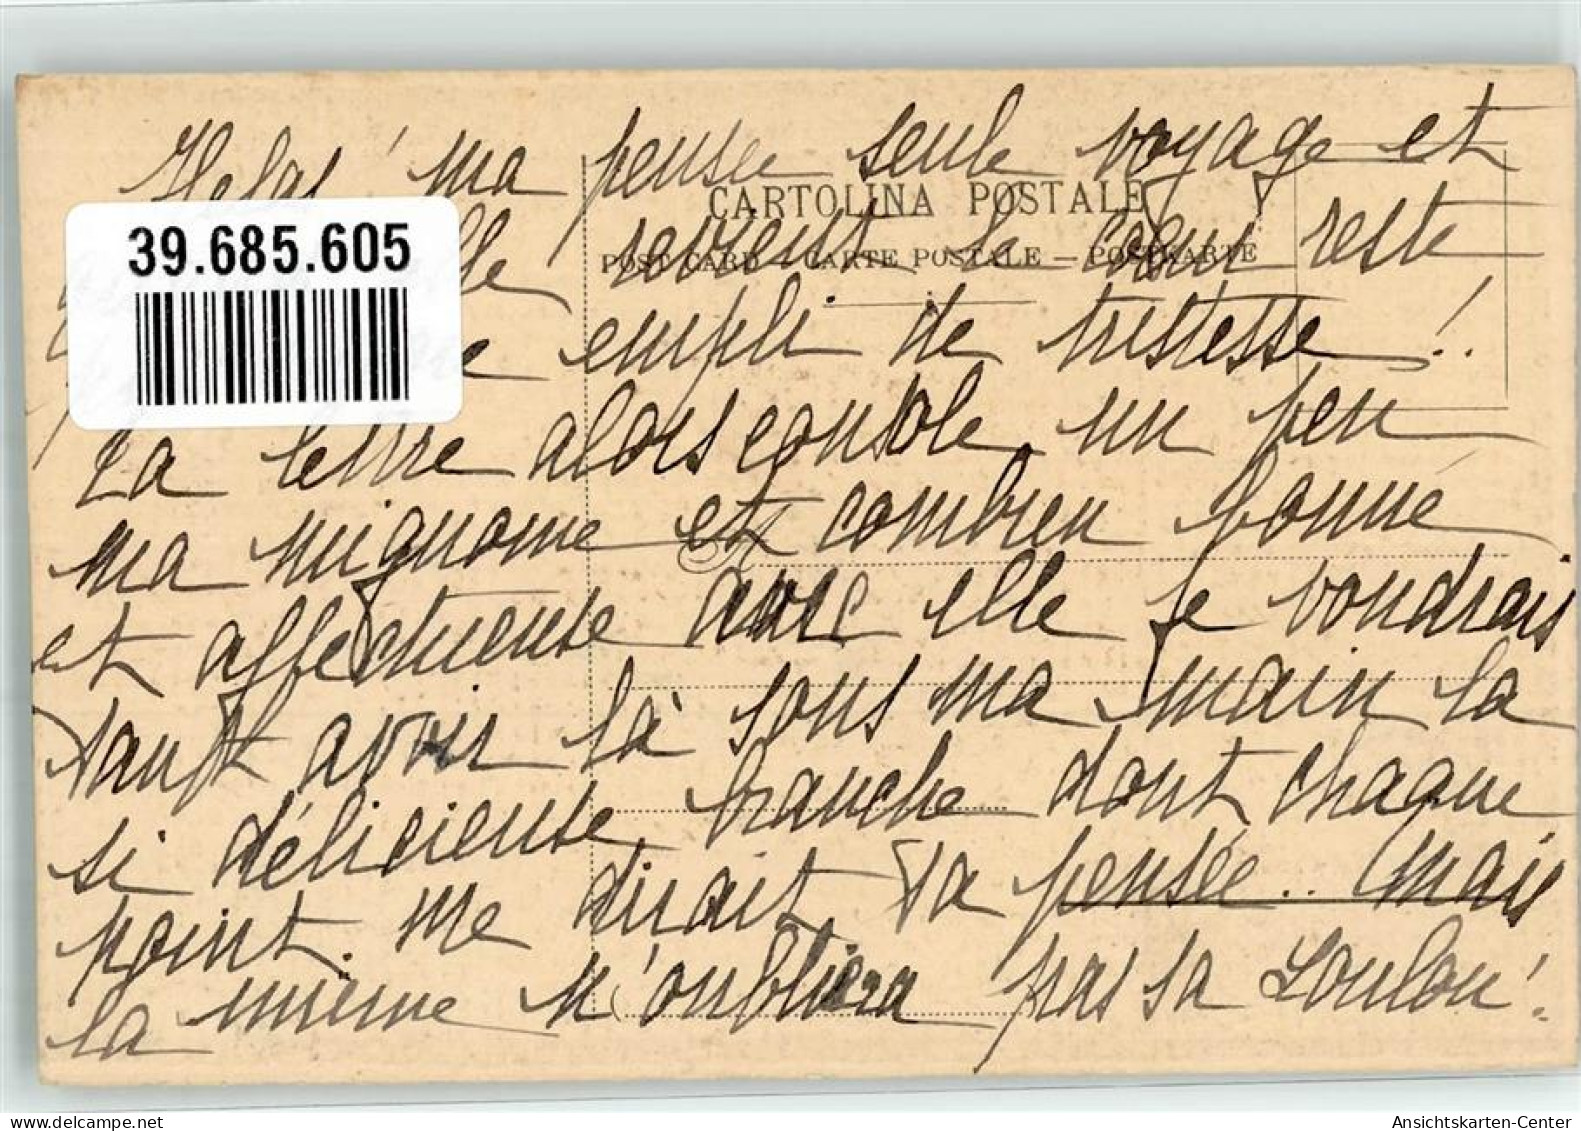 Helas' ma pensée seule voyage et
39.685.605
CARTOLINA POSTALE
elle revient le coeur reste
POST CARD – CARTE POSTALE – POSTKARTE
empli de tristesse !
La lettre alors console un peu
ma mignonne et combien bonne
et affectueuse avec elle je voudrais
avoir là sous ma main la
si délicieuse branche dont chaque
point me dirait ta pensée.. Mais
la mienne n'oubliera pas sa Loulou!
Ansichtskarten-Center